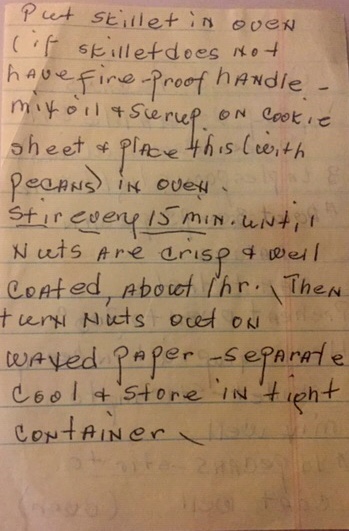 Put skillet in oven
(if skillet does not
have fire-proof handle -
mix oil & syrup on cookie
sheet & place this (with
pecans) in oven.
Stir every 15 min. until
nuts are crisp & well
coated, about 1 hr. Then
turn nuts out on
waxed paper - separate
Cool & store in tight
container